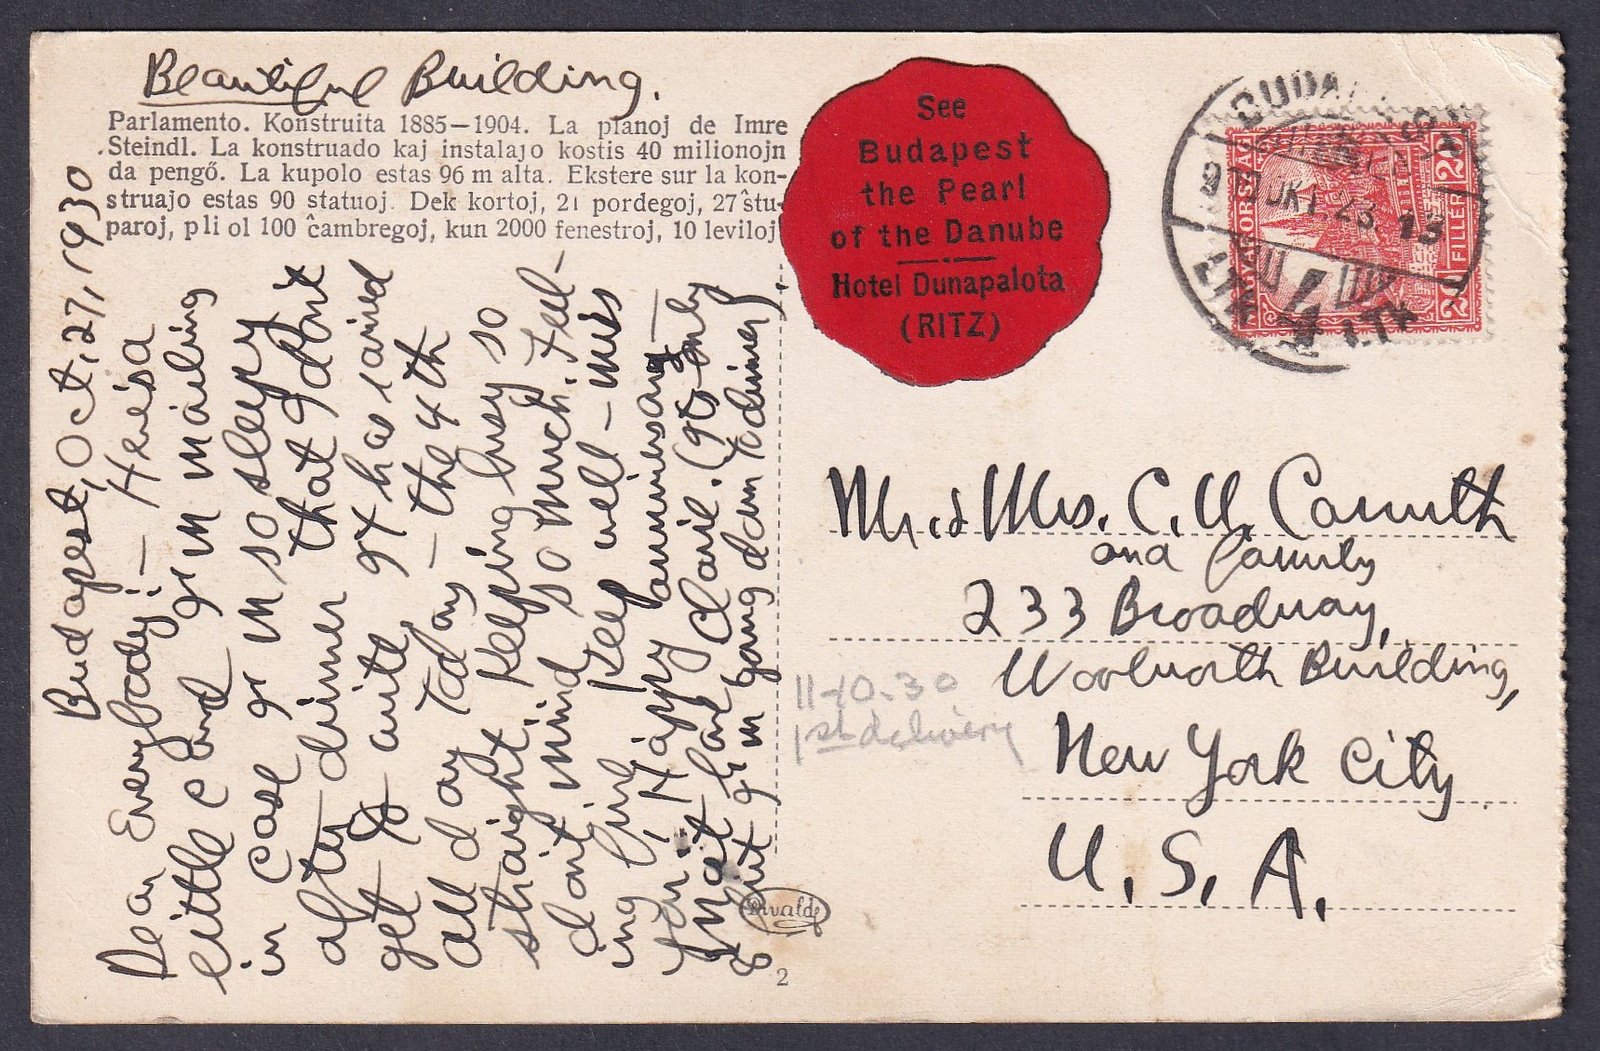 Beautiful Building.
Parlamento. Konstruita 1885—1904. La planoj de Imre
Steindl. La konstruado kaj instalajo kostis 40 milionojn
da pengő. La kupolo estas 96 m alta. Ekstere sur la kon-
struajo estas 90 statuoj. Dek kortoj, 21 pordegoj, 27 ŝtu-
paroj, pli ol 100 ĉambregoj, kun 2000 fenestroj, 10 leviloj
Budapest, Oct, 27, 1930
Dear Everybody:— Here's a
little card I'm mailing
in case I'm so sleepy
after dinner that I don't
get to write. It has rained
all day today — the 4th
straight. Keeping busy so
don't mind so much. Feel-
ing fine. Keep well — miss
you. Happy anniversary —
Mother and Claire. (It's only
8 but I'm going down to dinner).
Divald
2
See
Budapest
the Pearl
of the Danube
Hotel Dunapalota
(RITZ)
MAGYARORSZÁG
20 FILLÉR 20
OKT. 28. 13
Mr. & Mrs. C. U. Carruth
and family
233 Broadway,
Woolworth Building,
New York City
U. S. A.
11-10-30
1st delivery